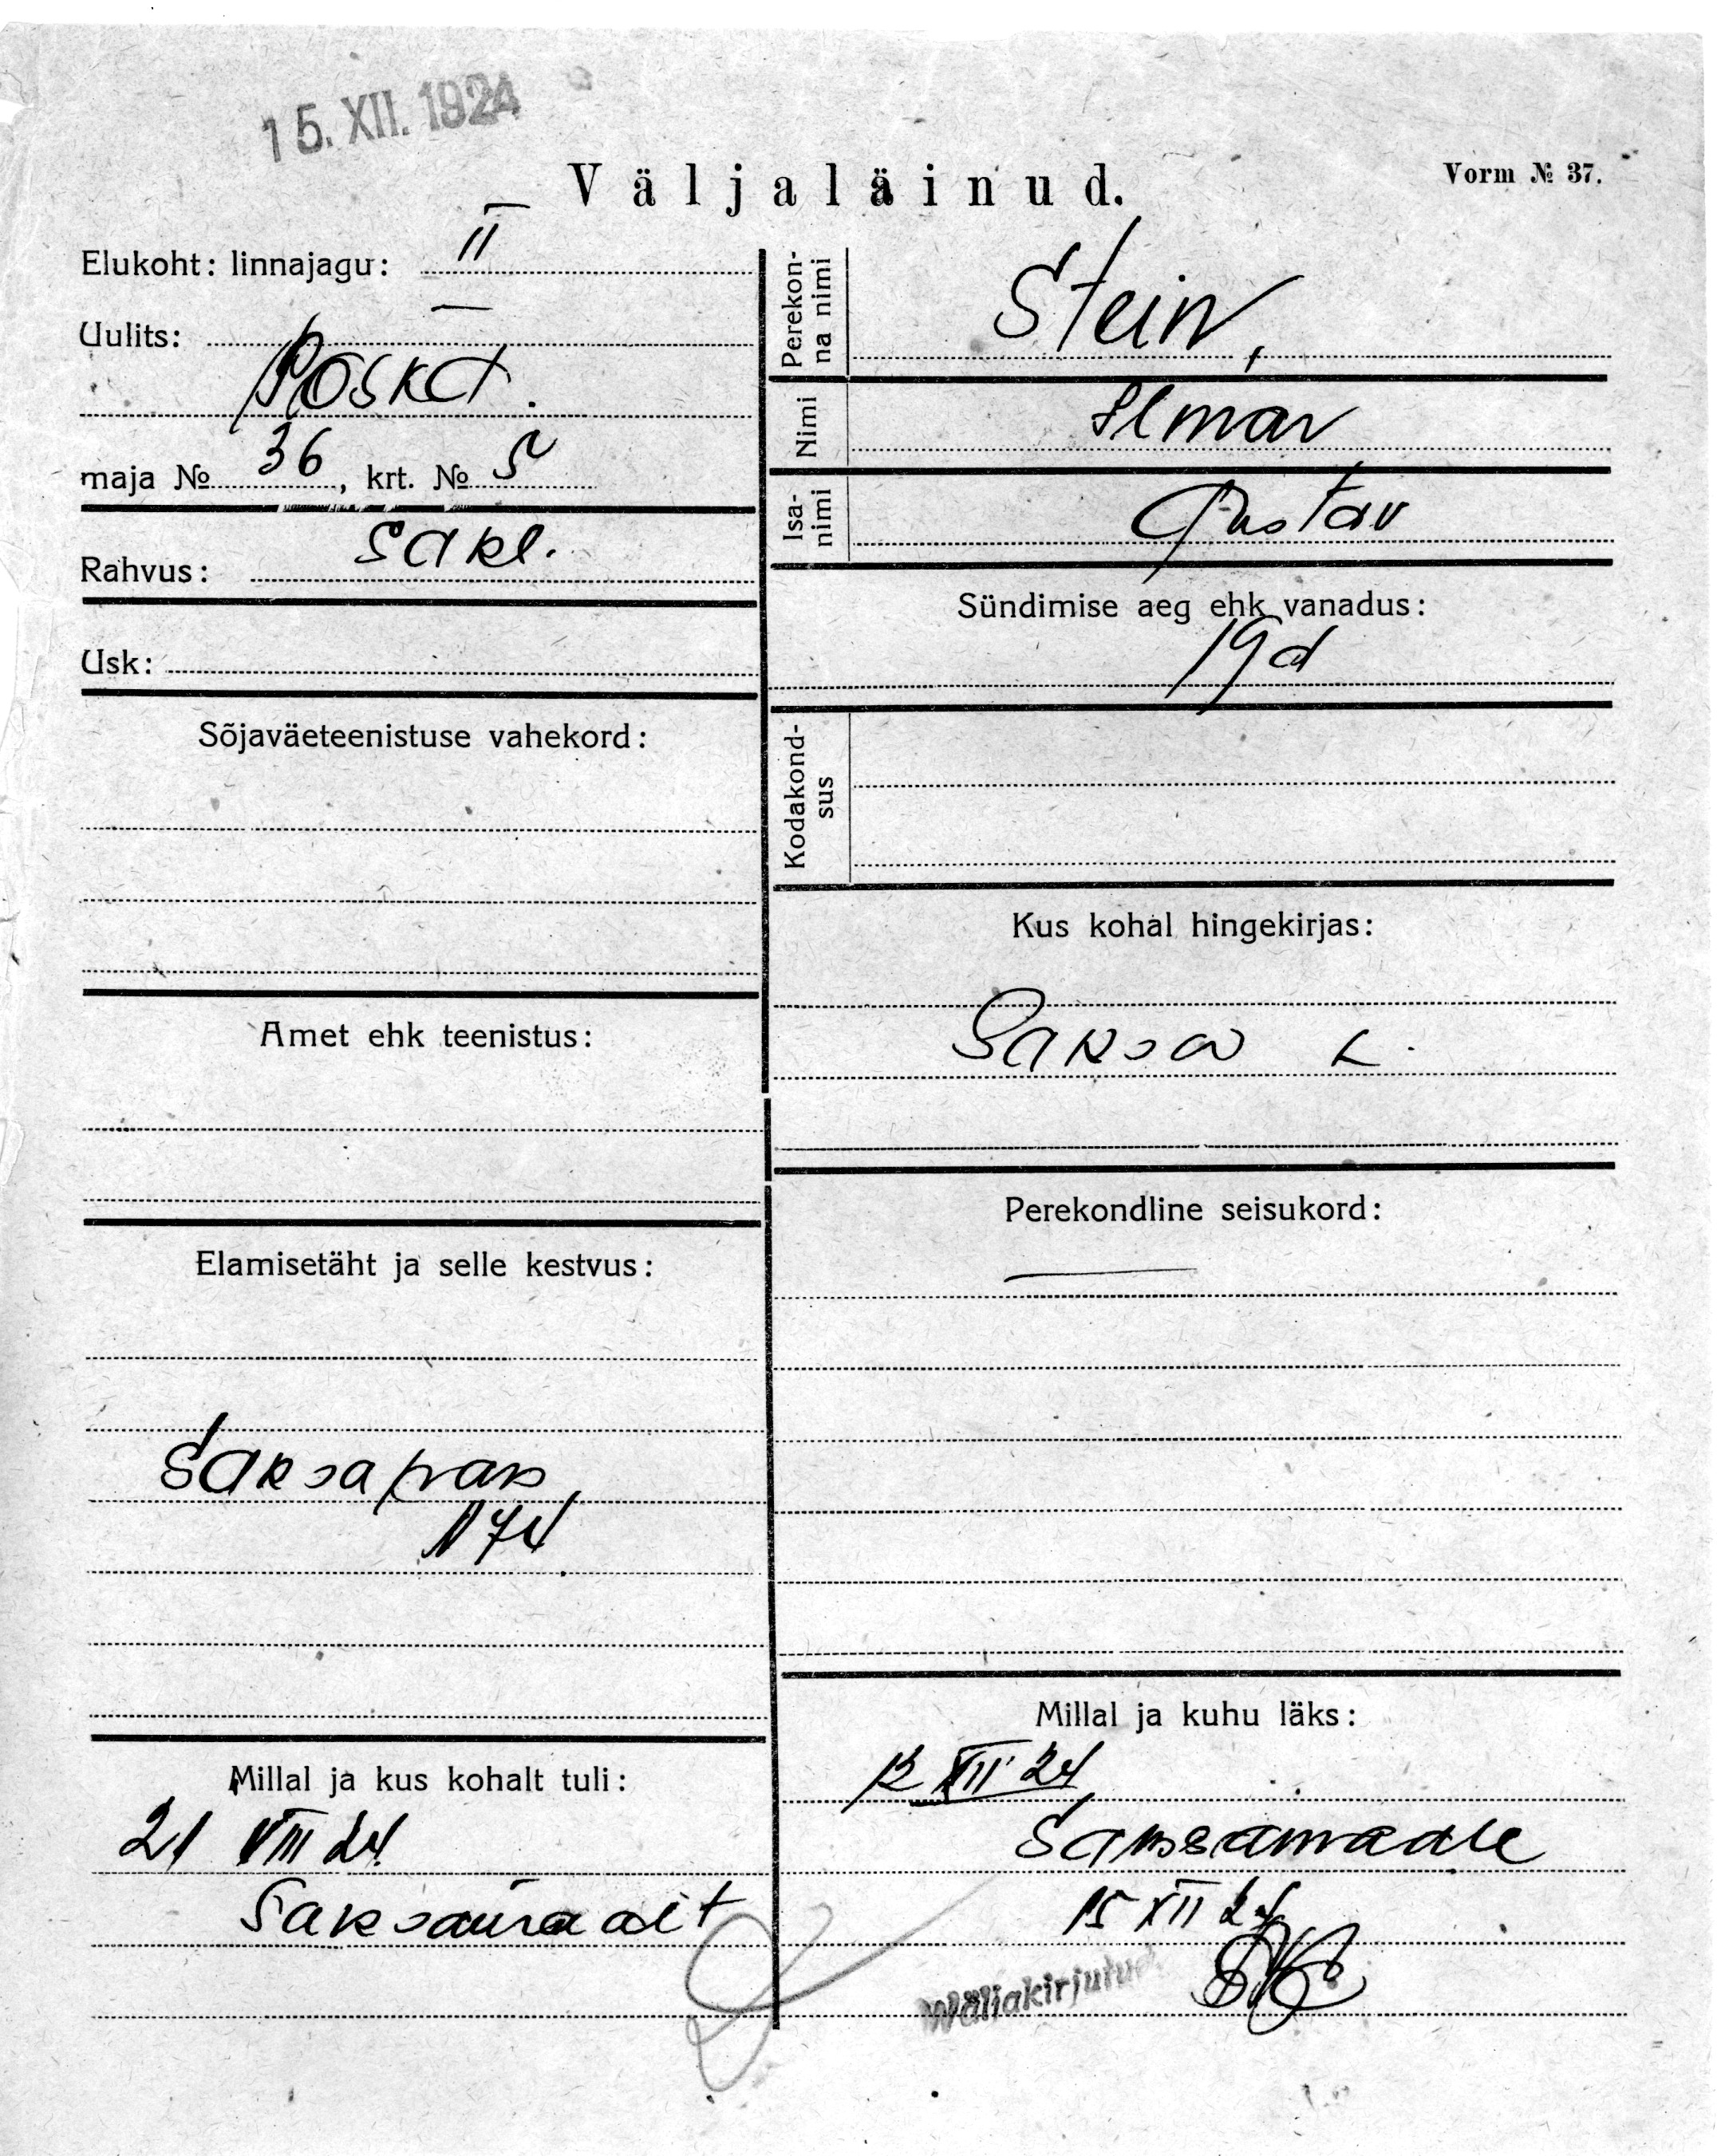 15. XII. 1924
Väljaläinud.
Vorm № 37.
Elukoht: linnajagu: II
Uulits:
Poska.
maja № 36, krt. № 5
Rahvus: sakl.
Usk:
Sõjaväeteenistuse vahekord:
Amet ehk teenistus:
Elamisetäht ja selle kestvus:
Saksa pass
N 74
Millal ja kus kohalt tuli:
21 VIII 24
Saksamaalt
Perekon-
na nimi
Stein,
Nimi
Ilmar
Isa-
nimi
Gustav
Sündimise aeg ehk vanadus:
19 a
Kodakond-
sus
Kus kohal hingekirjas:
Saksa k.
Perekondline seisukord:
Millal ja kuhu läks:
12 XII 24
Saksamaale
15 XII 24
Wäljakirjutud